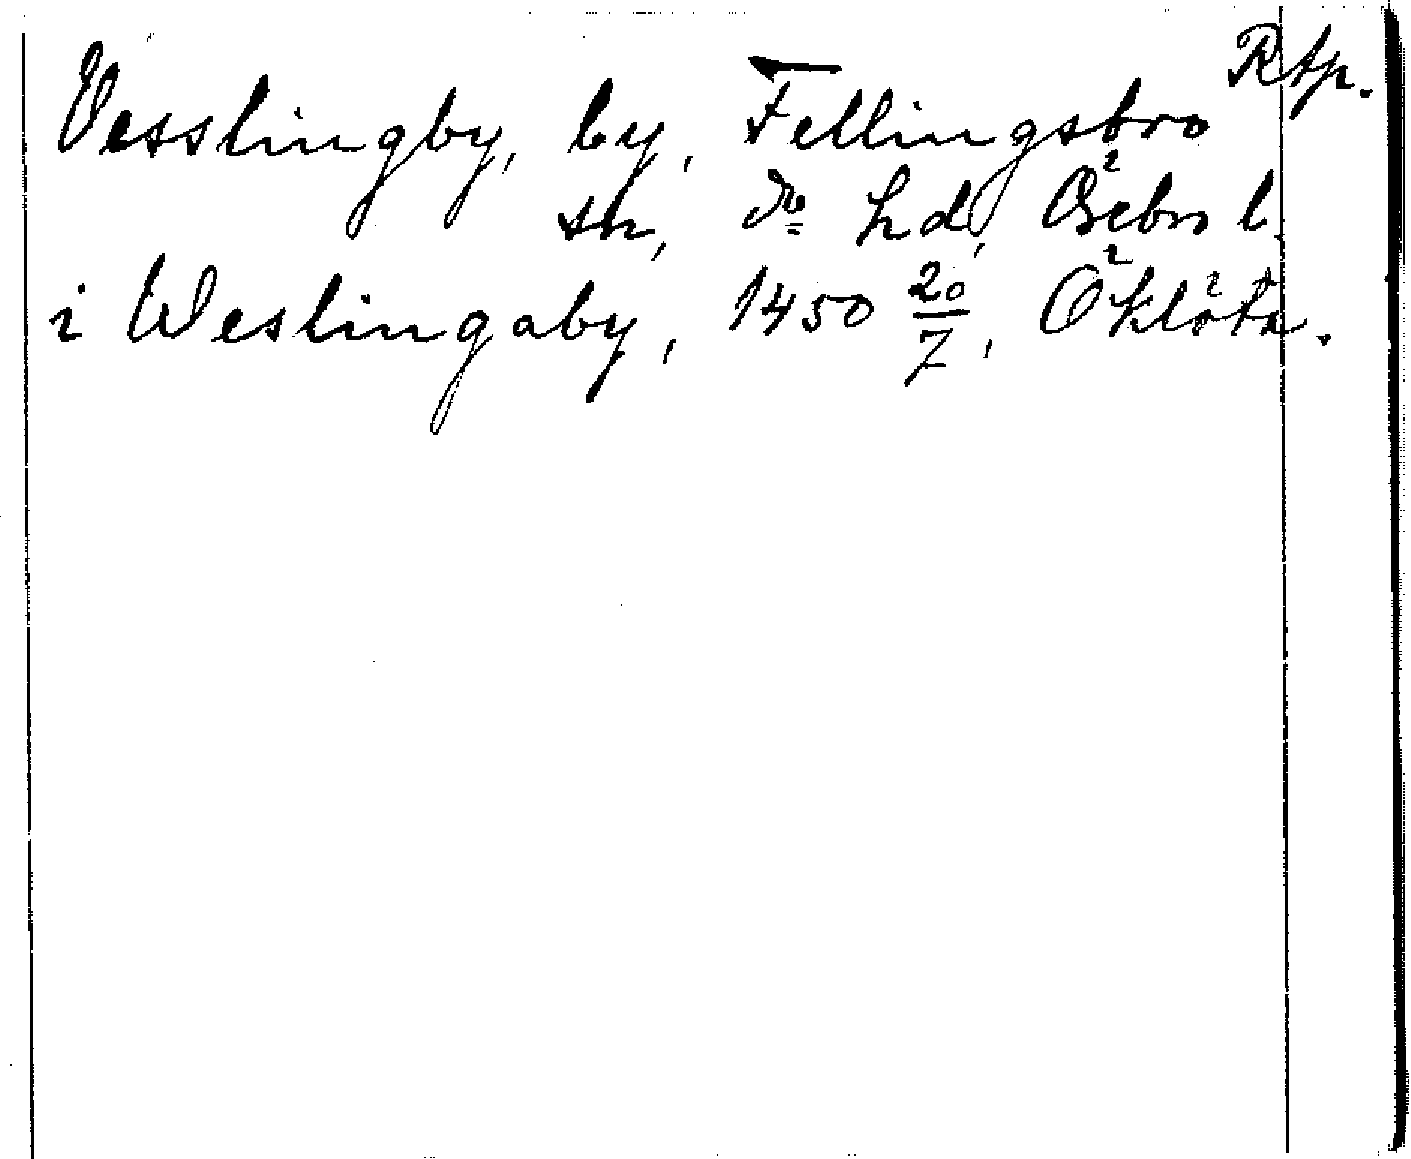 Rtp.
Vesslingby, by, Fellingsbro
sn, do hd, Örebro l.
i Weslingaby, 1450 20/7, Ö Klöta.